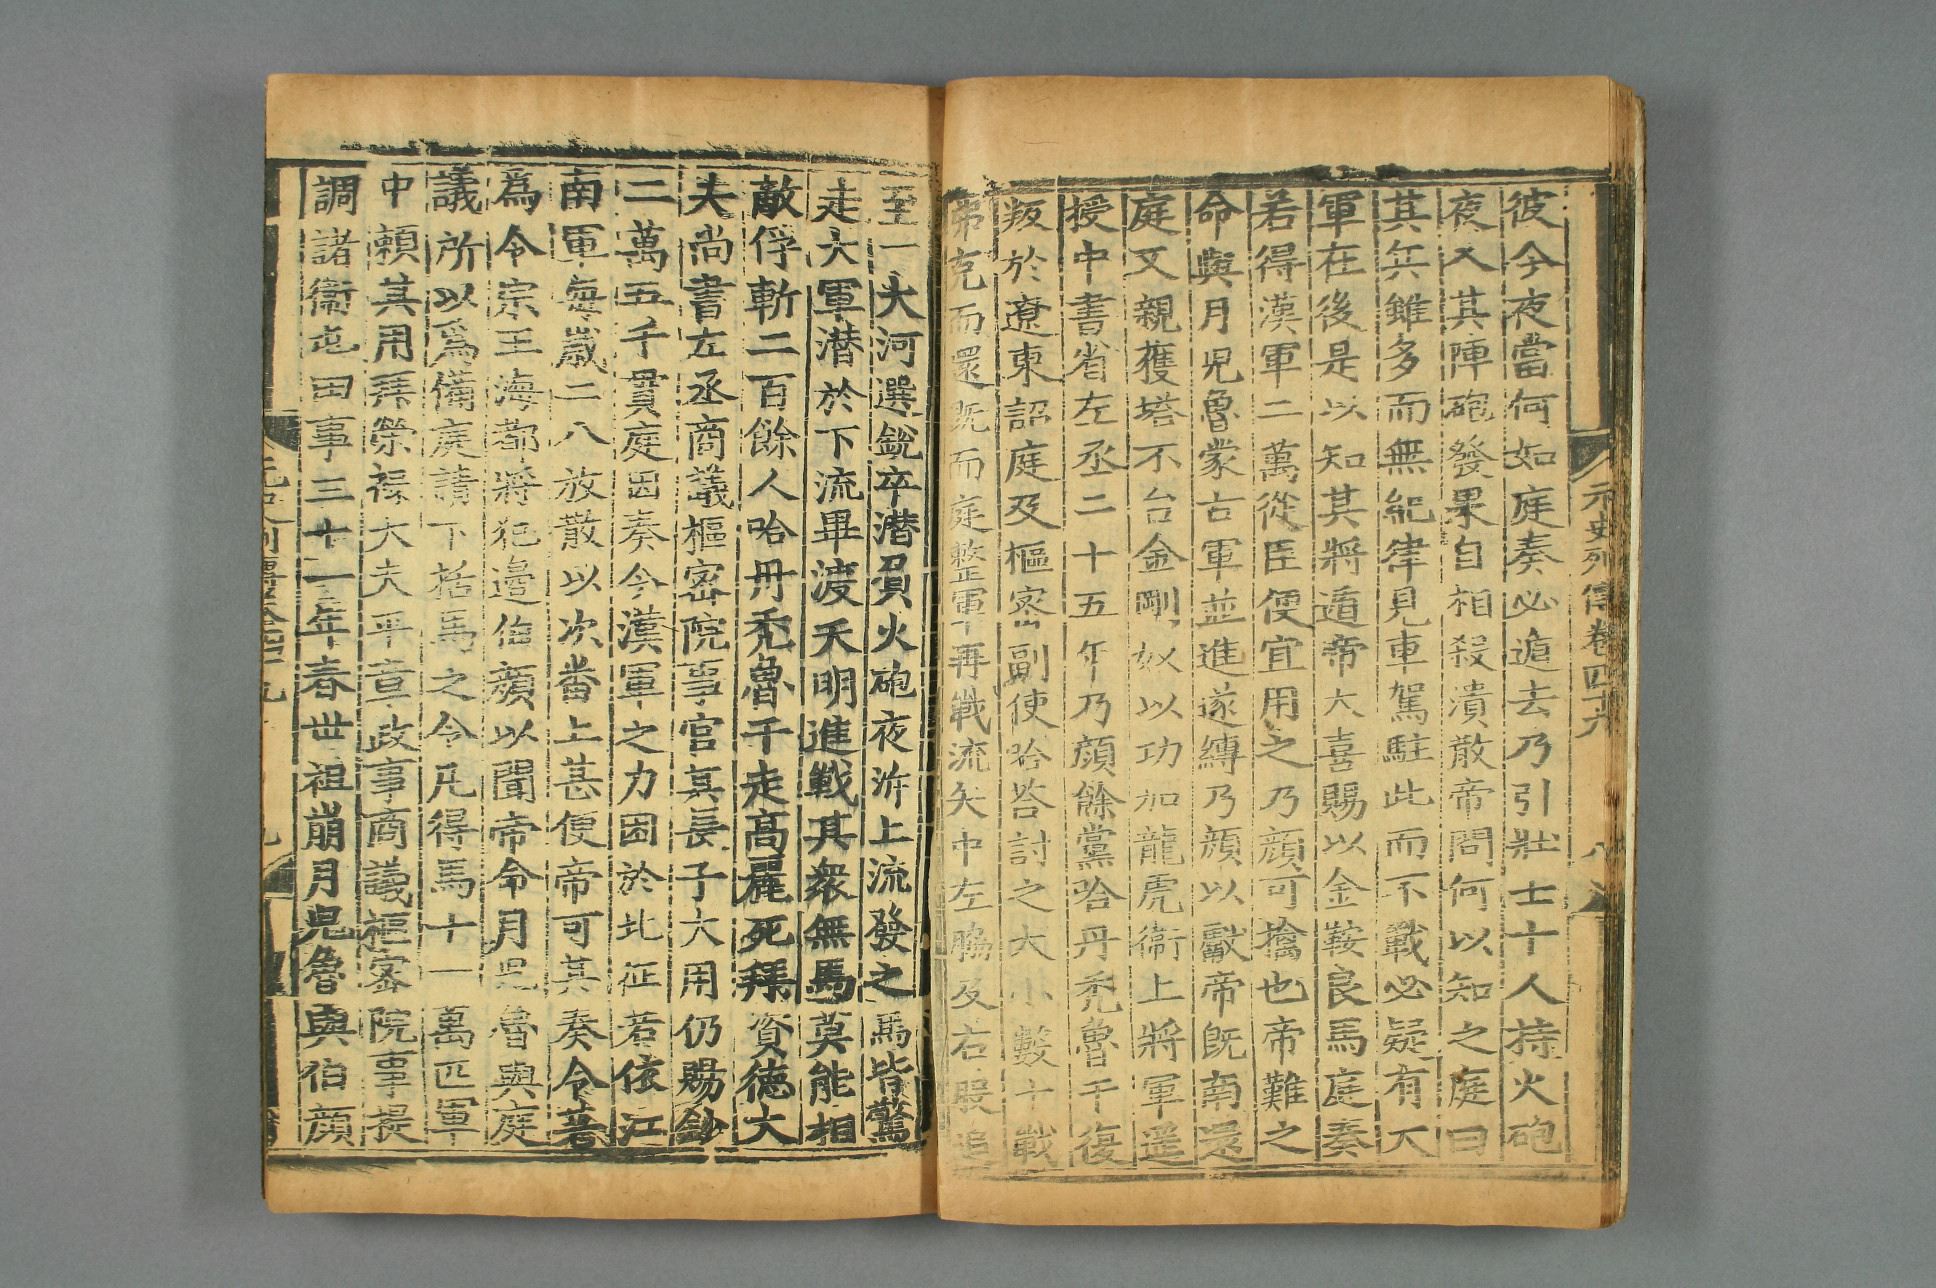 元史列傳卷四十九
八
彼今夜當何如庭奏必遁去乃引壯士十人持火砲
夜入其陣砲發果自相殺潰散帝問何以知之庭曰
其兵雖多而無紀律見車駕駐此而不戰必疑有大
軍在後是以知其將遁帝大喜賜以金鞍良馬庭奏
若得漢軍二萬從臣便宜用之乃顔可擒也帝難之
命與月兒魯蒙古軍並進遂縛乃顔以獻帝既南還
庭又親獲塔不台金剛奴以功加龍虎衛上將軍遥
授中書省左丞二十五年乃顔餘黨哈丹禿魯干復
叛於遼東詔庭及樞密副使哈荅討之大小數十戰
弗克而還既而庭整軍再戰流矢中左脇及右股追
至一大河選銳卒潛負火砲夜泝上流發之馬皆驚
走大軍潛於下流畢渡天明進戰其衆無馬莫能相
敵俘斬二百餘人哈丹禿魯干走高麗死拜資德大
夫尚書左丞商議樞密院事官其長子大用仍賜鈔
二萬五千貫庭因奏今漢軍之力困於北征若依江
南軍每歲二八放散以次番上甚便帝可其奏令著
為令宗王海都將犯邊伯顔以聞帝命月兒魯與庭
議所以爲備庭請下括馬之令凡得馬十一萬匹軍
中頼其用拜榮祿大夫平章政事商議樞密院事提
調諸衞屯田事三十一年春世祖崩月兒魯與伯顔